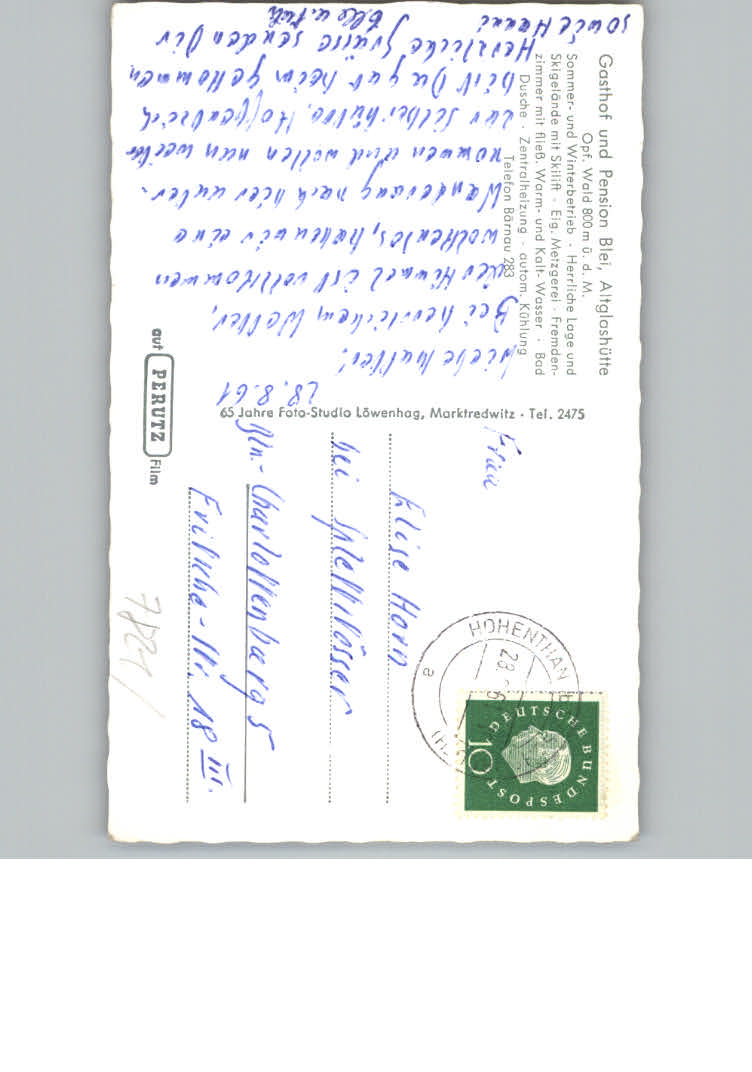 Gasthof und Pension Blei, Altglashütte
Opf. Wald 800 m ü. d. M.
Sommer- und Winterbetrieb · Herrliche Lage und
Skigelände mit Skilift · Eig. Metzgerei · Fremden-
zimmer mit fließ. Warm- und Kalt-Wasser · Bad
Dusche · Zentralheizung · autom. Kühlung
Telefon Bärnau 283
28.8.61
Liebe Mutter!
Bei herrlichem Wetter,
der Himmel ist vollkommen
wolkenlos, haben wir eine
Wanderung nach hier unter-
nommen und wollen nun weiter
zur Silberhütte. Hoffentlich
bist Du gut heim gekommen
Herzliche Grüsse senden Dir
sowie Hanni
65 Jahre Foto-Studio Löwenhag, Marktredwitz · Tel. 2475
auf PERUTZ Film
Frau
Elise Horn
bei Splettstösser
Bln.-Charlottenburg 5
Fritsche-Str. 18 III.
HOHENTHAN
28
a
DEUTSCHE BUNDESPOST
10